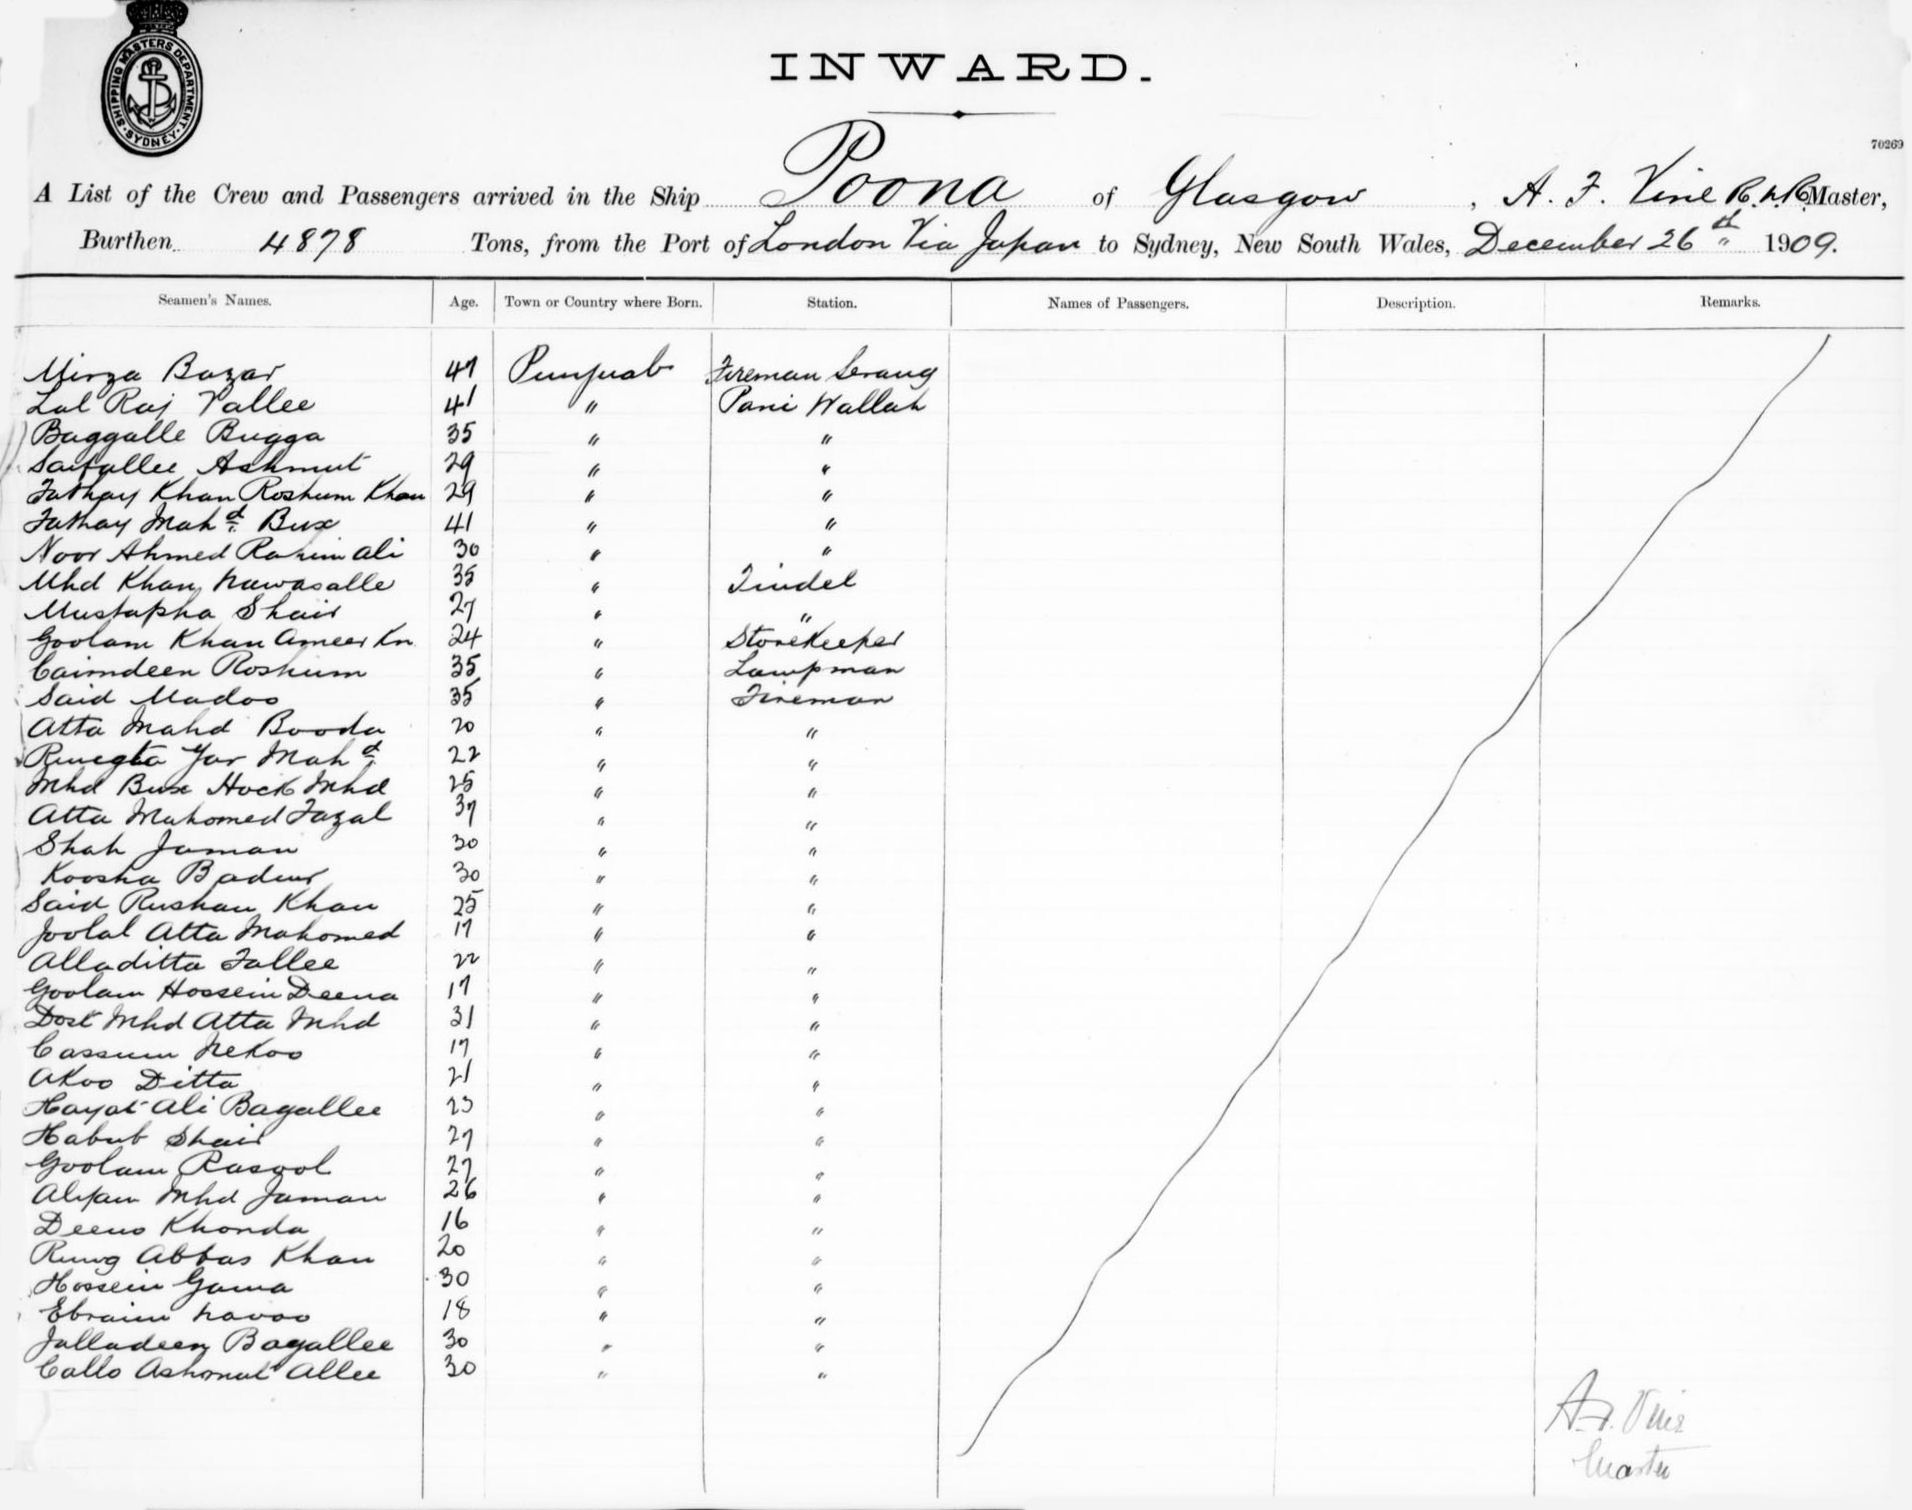 SHIPPING MASTERS DEPARTMENT
SYDNEY
INWARD.
70269
A List of the Crew and Passengers arrived in the Ship Poona of Glasgow, A. F. Vine R.N.R. Master,
Burthen 4878 Tons, from the Port of London Via Japan to Sydney, New South Wales, December 26th 1909.
Seamen's Names. Age. Town or Country where Born. Station. Names of Passengers. Description. Remarks.
Mirza Bazar 47 Punjuab Fireman Serang
Lal Raj Vallee 41 " Pani Wallah
Baggalle Bugga 35 " "
Saifullee Ashmut 29 " "
Fathay Khan Roshum Khan 29 " "
Fathay Mahd. Bux 41 " "
Noor Ahmed Rahim Ali 30 " "
Mhd Khan Nawasalle 35 " Tindel
Mustapha Shair 27 " "
Goolam Khan Ameer Kn 24 " Storekeeper
Caimdeen Roshum 35 " Lampman
Said Madoo 35 " Fireman
Atta Mahd Booda 20 " "
Yar Mahd. 22 " "
Mhd Bux Hock Mhd 25 " "
Atta Mahomed Fazal 37 " "
Shah Jaman 30 " "
Koosha Badur 30 " "
Said Rushan Khan 25 " "
Joolal Atta Mahomed 17 " "
Alladitta Fallee 22 " "
Goolam Hossein Deena 17 " "
Dost Mhd Atta Mhd 31 " "
Cassum Nekoo 17 " "
Akoo Ditta 21 " "
Hayat Ali Bagallee 23 " "
Habub Shair 27 " "
Goolam Rasool 27 " "
Mhd Jaman 26 " "
Deeno Khonda 16 " "
Rung Abbas Khan 20 " "
Hossein Gama 30 " "
Ebraim Navoo 18 " "
Jalladeen Bagallee 30 " "
Callo Ashmut Allee 30 " "
A. F. Vine
Master